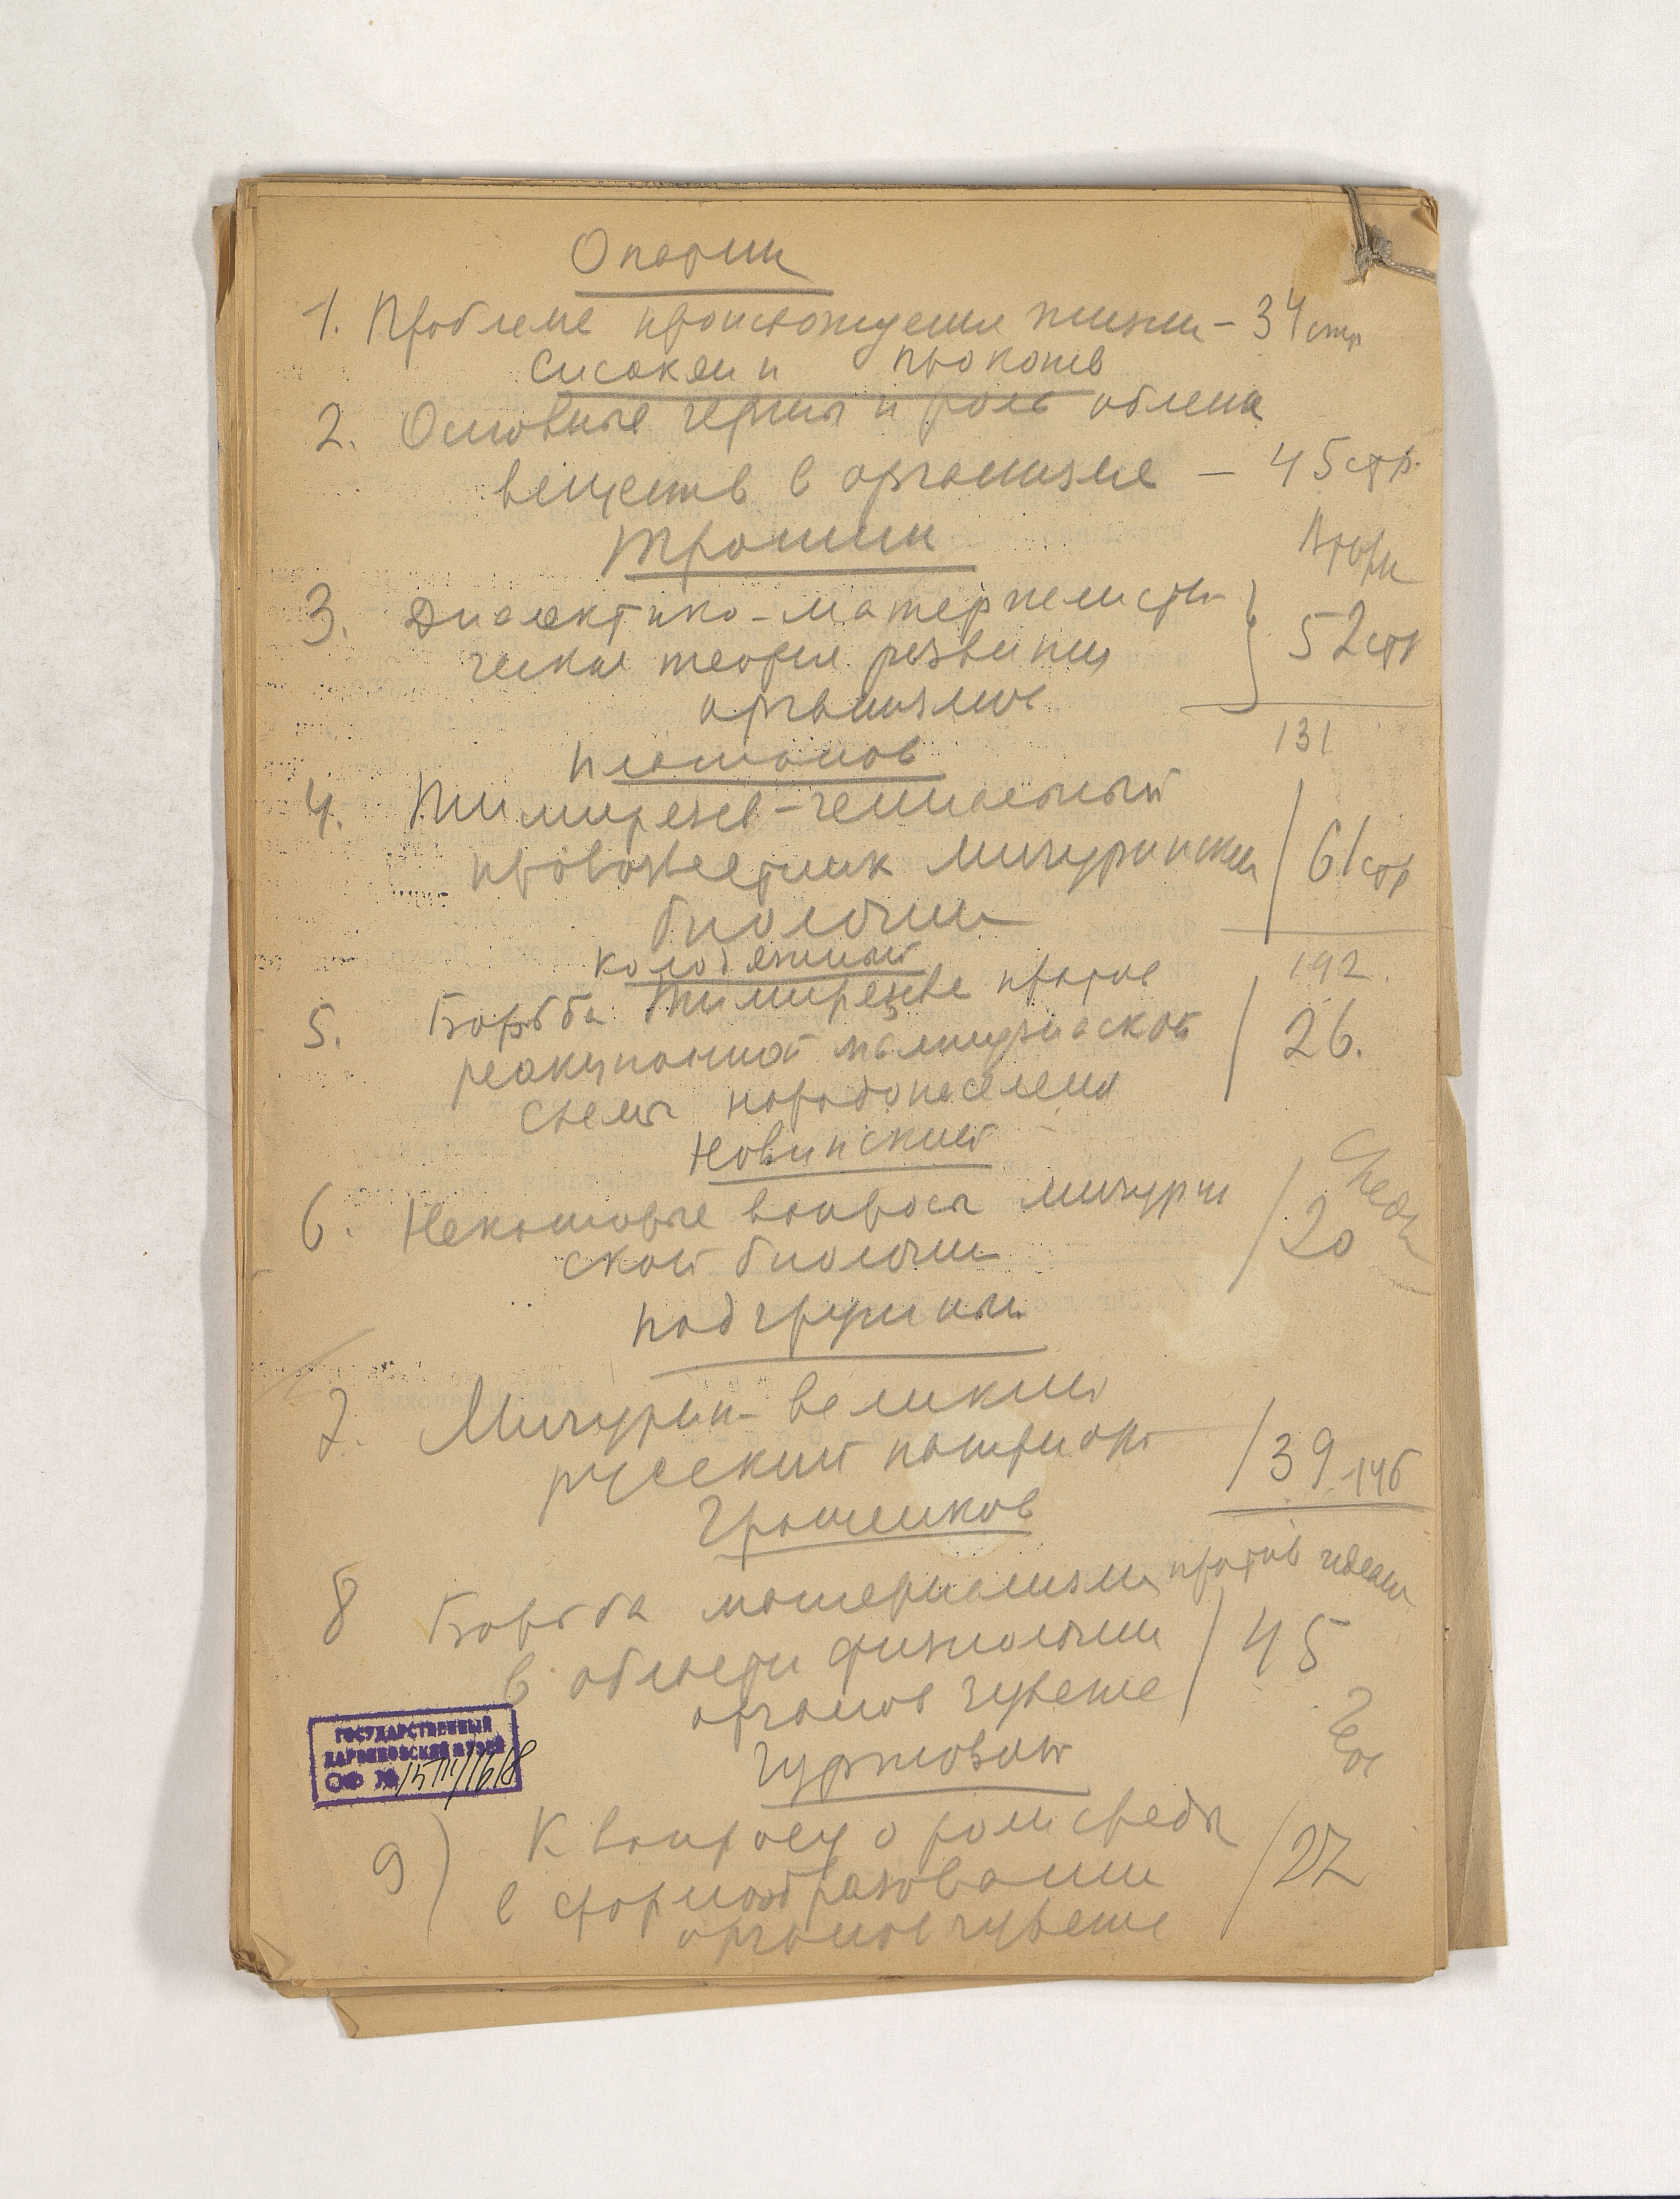 Опарин
1. Проблема происхождения жизни - 34 стр
Сисакян и
2. Основные черты и роль обмена
веществ в организме - 45 стр.
Трошин
Вторн
3. Диалектико-материалисти-
ческая теория развития 52 стр
организмов
131
Платонов
4. Тимирязев - гениальный
провозвестник мичуринской 61 стр
биологии
Колодяжный
192.
5. Борьба Тимирязева против
реакционной мальтузианской 26.
схемы народонаселения
Новинский
Среда
6. Некоторые вопросы мичурин
ской биологии 20
Подгрушный
7. Мичурин - великий
русский патриот 39 - 146
Гращенков
8 Борьба материализма против идеали
в области физиологии 45
органов чувств
9) К вопросу о роли среды
в формообразовании 27
органов чувств
ГОСУДАРСТВЕННЫЙ
ДАРВИНОВСКИЙ МУЗЕЙ
ОФ №